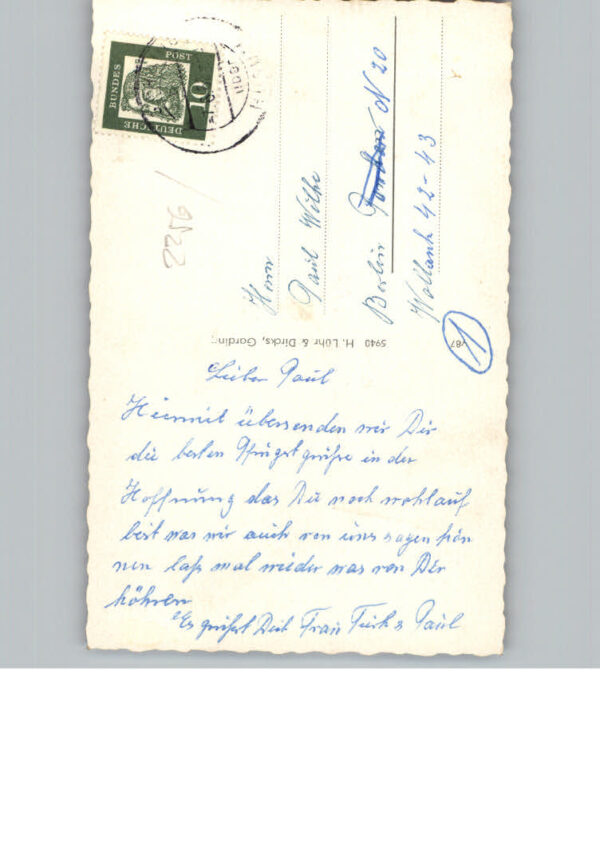 DEUTSCHE
BUNDES
POST
10
2256 /
Herrn
Paul Wilke
Berlin N 20
Wollank 42-43
1
5940 H. Lühr & Dircks, Garding
Lieber Paul
Hiermit übersenden wir Dir
die besten Pfingstgrüße in der
Hoffnung das Du noch wohlauf
bist was wir auch von uns sagen kön
nen laß mal wieder was von Dir
höhren
Es grüßt Dich Frau &  Paul